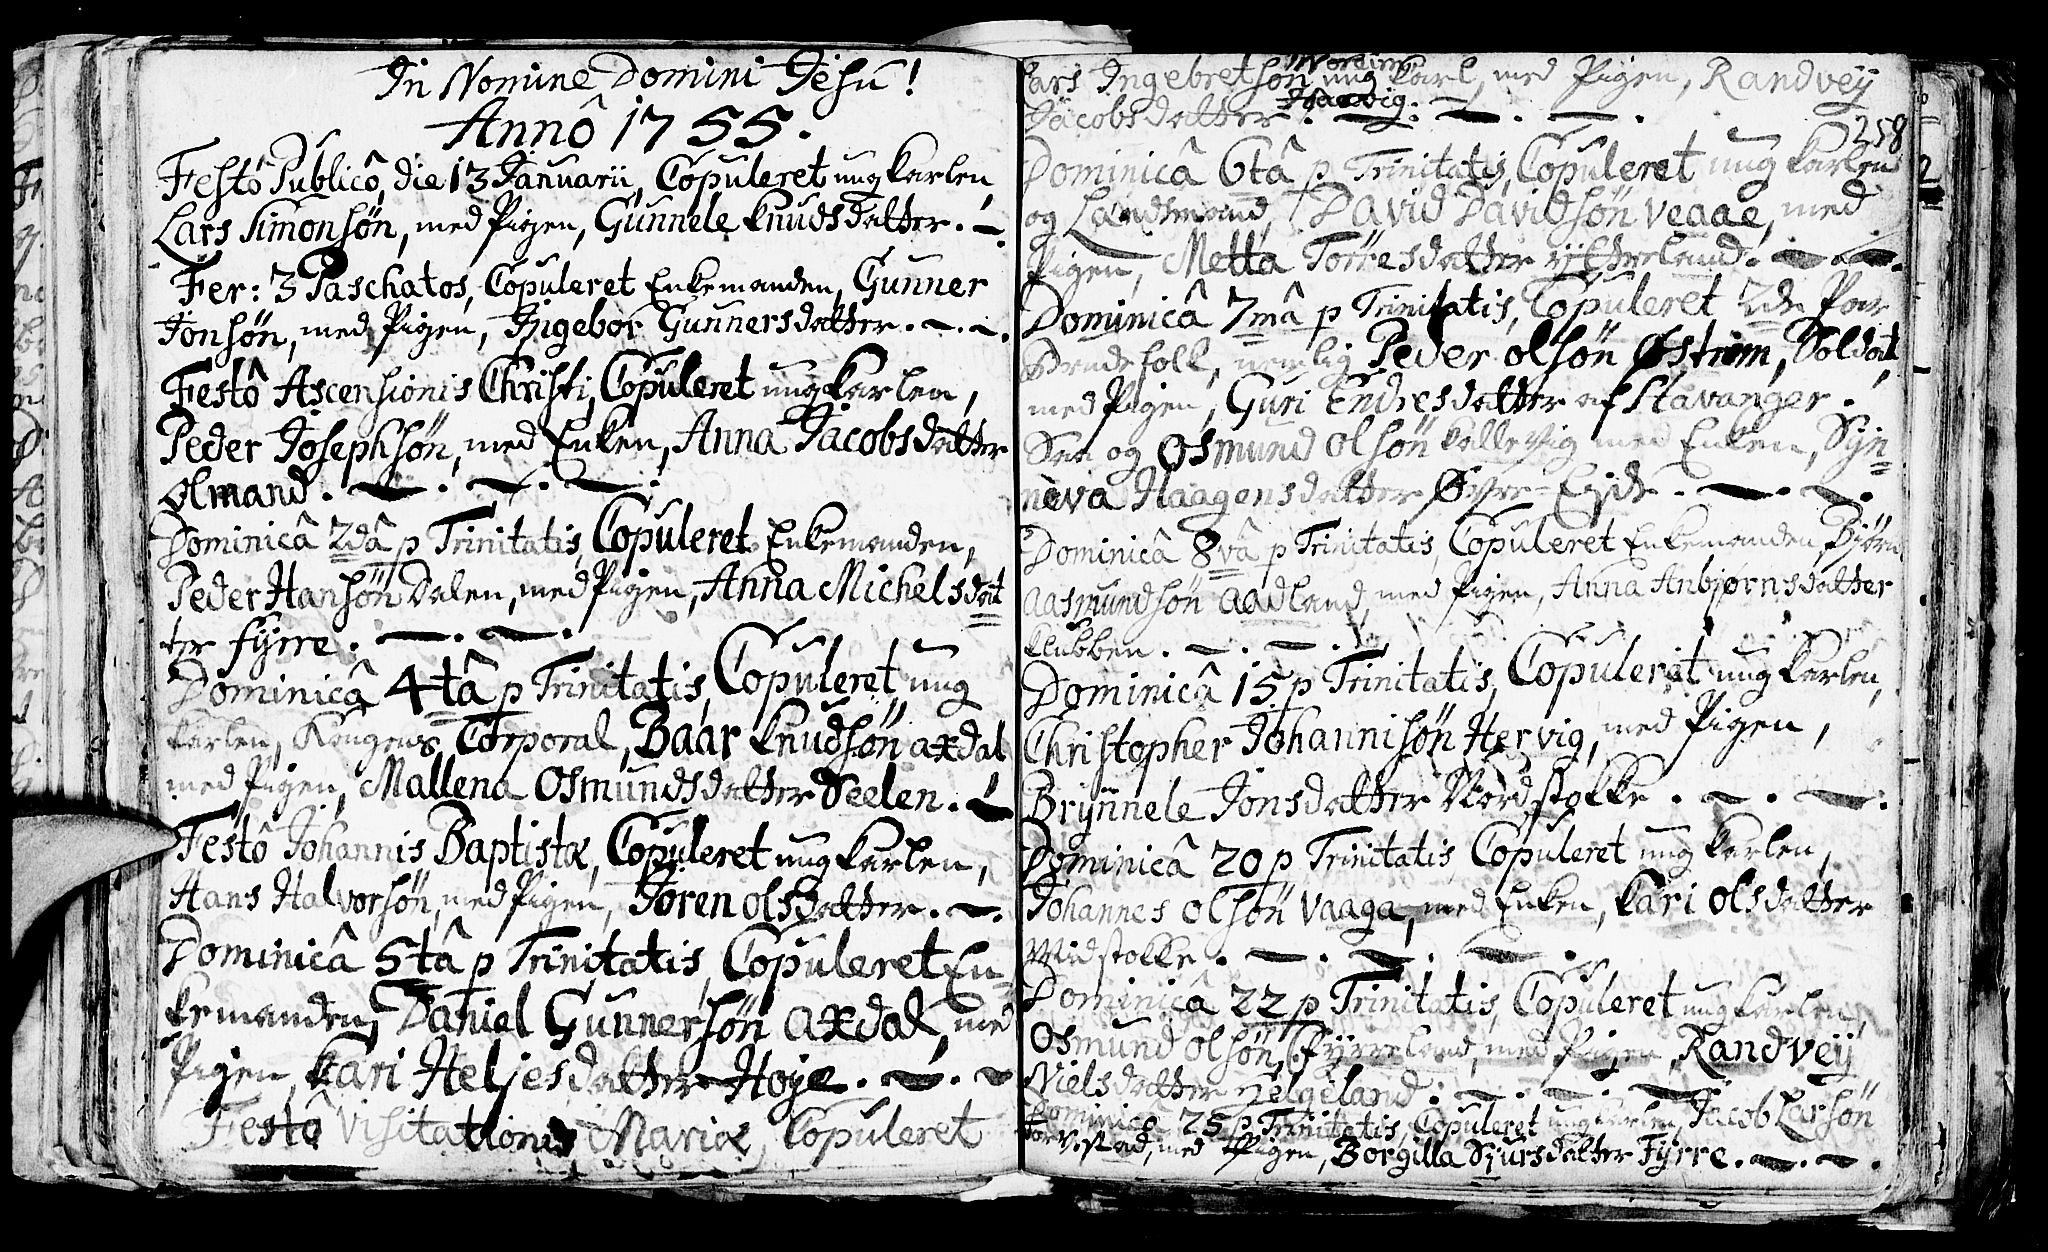 In Nomine Domini Jesu!
Annô 1755.
Festô Publicô, die 13 Januarii, Copuleret ungkarlen,
Lars Simonsøn, med Pigen, Gunnele Knudsdatter. —.
Fer: 3 Paschatos, Copuleret Enkemanden, Gunner
Jonsøn, med Pigen, Ingebor Gunnersdatter. —. —.
Festô Ascensionis Christi, Copuleret ungkarlen,
Peder Josephsøn, med Enken, Anna Jacobsdatter
Olmand. —. —. —.
Dominicâ 2dâ p Trinitatis, Copuleret Enkemanden,
Peder Hansøn Dalen, med Pigen, Anna Michelsdat=
ter Fÿrre. —. —.
Dominicâ 4tâ p Trinitatis, Copuleret ung
karlen, Kongens Corporal, Baar Knudsøn axdal
med Pigen, Mallena Osmundsdatter Seelen. —
Festô Johannis Baptistæ, Copuleret ungkarlen,
Hans Halvorsøn, med Pigen, Jören olsdatter. —.
Dominicâ 5tâ p Trinitatis, Copuleret En=
kemanden, Daniel Gunnersøn axdal, med
Pigen, Kari Heljesdatter Høje. —. —
Festô Visitationis Mariæ, Copuleret
Lars Ingebretsøn ung karl, med Pigen, Randveÿ
Jacobsdatter. —. —. —.
258
Dominicâ 6tâ p Trinitatis, Copuleret ung karlen
og Landsmand, David Davidsøn veaae, med
Pigen, Metta Torresdatter ÿtreland. —. —.
Dominicâ 7mâ p Trinitatis, Copuleret 2de Par
Brudefolk, nemlig Peder olsøn Østrem, Soldat,
med Pigen, Guri Endresdatter af Stavanger.
Saa og Osmund olsøn kallevig med Enken, Sÿn=
neva Haagensdatter Øvre=Eide. —. —.
Dominicâ 8vâ p Trinitatis, Copuleret Enkemanden, Bjørn
aasmundsøn aadland, med Pigen, Anna Anbjørnsdatter
klubben. —. —.
Dominicâ 15 p Trinitatis, Copuleret ung karlen,
Christopher Johannisøn Hervig, med Pigen,
Brÿnnele Jonsdatter Nordstokke. —. —.
Dominicâ 20 p Trinitatis, Copuleret ung karlen,
Johannes olsøn vaaga, med Enken, Kari olsdatter
Midstokke. —. —. —.
Dominicâ 22 p Trinitatis, Copuleret ungkarlen,
Osmund olsøn Fÿrreland, med Pigen, Randveÿ
Nielsdatter Helgeland. —. —. —.
Dominicâ 25 p Trinitatis, Copuleret ungkarlen, Jacob Larsøn
Torvestad, med Pigen, Borgilla Sjursdatter Fÿrre. —. —.